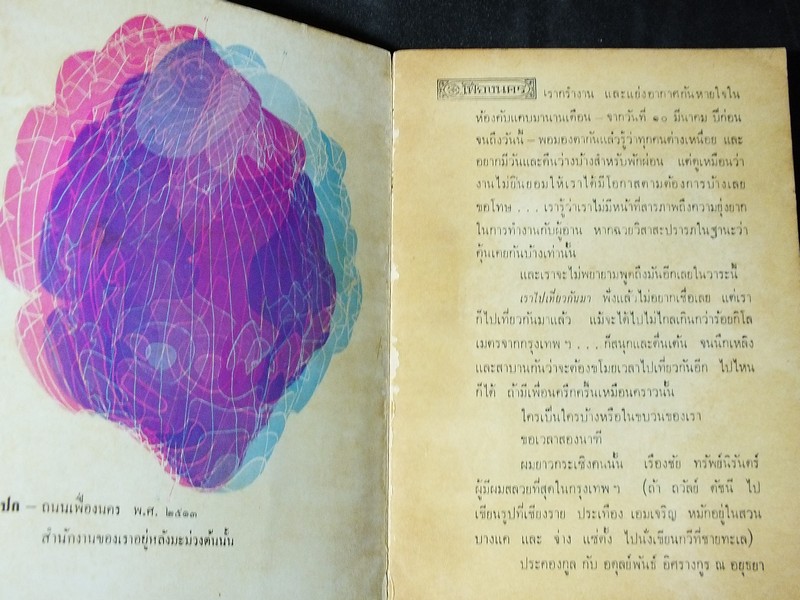 ปก – ถนนเฟื่องนคร พ.ศ. ๒๕๑๓
สำนักงานของเราอยู่หลังมะม่วงต้นนั้น
เฟื่องนคร เรากรำงาน และแย่งอากาศกันหายใจใน
ห้องคับแคบมานานเดือน – จากวันที่ ๑๐ มีนาคม ปีก่อน
จนถึงวันนี้ – พอมองตากันแล้วรู้ว่าทุกคนต่างเหนื่อย และ
อยากมีวันและคืนว่างบ้างสำหรับพักผ่อน แต่ดูเหมือนว่า
งานไม่ยินยอมให้เราได้มีโอกาสตามต้องการบ้างเลย
ขอโทษ . . . เรารู้ว่าเราไม่มีหน้าที่สารภาพถึงความยุ่งยาก
ในการทำงานกับผู้อ่าน หากฉวยวิสาสะปรารภในฐานะว่า
คุ้นเคยกันบ้างเท่านั้น
และเราจะไม่พยายามพูดถึงมันอีกเลยในวาระนี้
เราไปเที่ยวกันมา ฟังแล้วไม่อยากเชื่อเลย แต่เรา
ก็ไปเที่ยวกันมาแล้ว แม้จะได้ไปไม่ไกลเกินกว่าร้อยกิโล
เมตรจากกรุงเทพ ฯ . . . ก็สนุกและตื่นเต้น จนนึกเหลิง
และสาบานกันว่าจะต้องขโมยเวลาไปเที่ยวกันอีก ไปไหน
ก็ได้ ถ้ามีเพื่อนครึกครื้นเหมือนคราวนั้น
ใครเป็นใครบ้างหรือในขบวนของเรา
ขอเวลาสองนาที
ผมยาวกระเซิงคนนั้น เรืองชัย ทรัพย์นิรันดร์
ผู้มีผมสลวยที่สุดในกรุงเทพ ฯ (ถ้า ถวัลย์ ดัชนี ไป
เขียนรูปที่เชียงราย ประเทือง เอมเจริญ หมักอยู่ในสวน
บางแค และ จ่าง แซ่ตั้ง ไปนั่งเขียนกวีที่ชายทะเล)
ประคองกูล กับ อดุลย์พันธ์ อิศรางกูร ณ อยุธยา